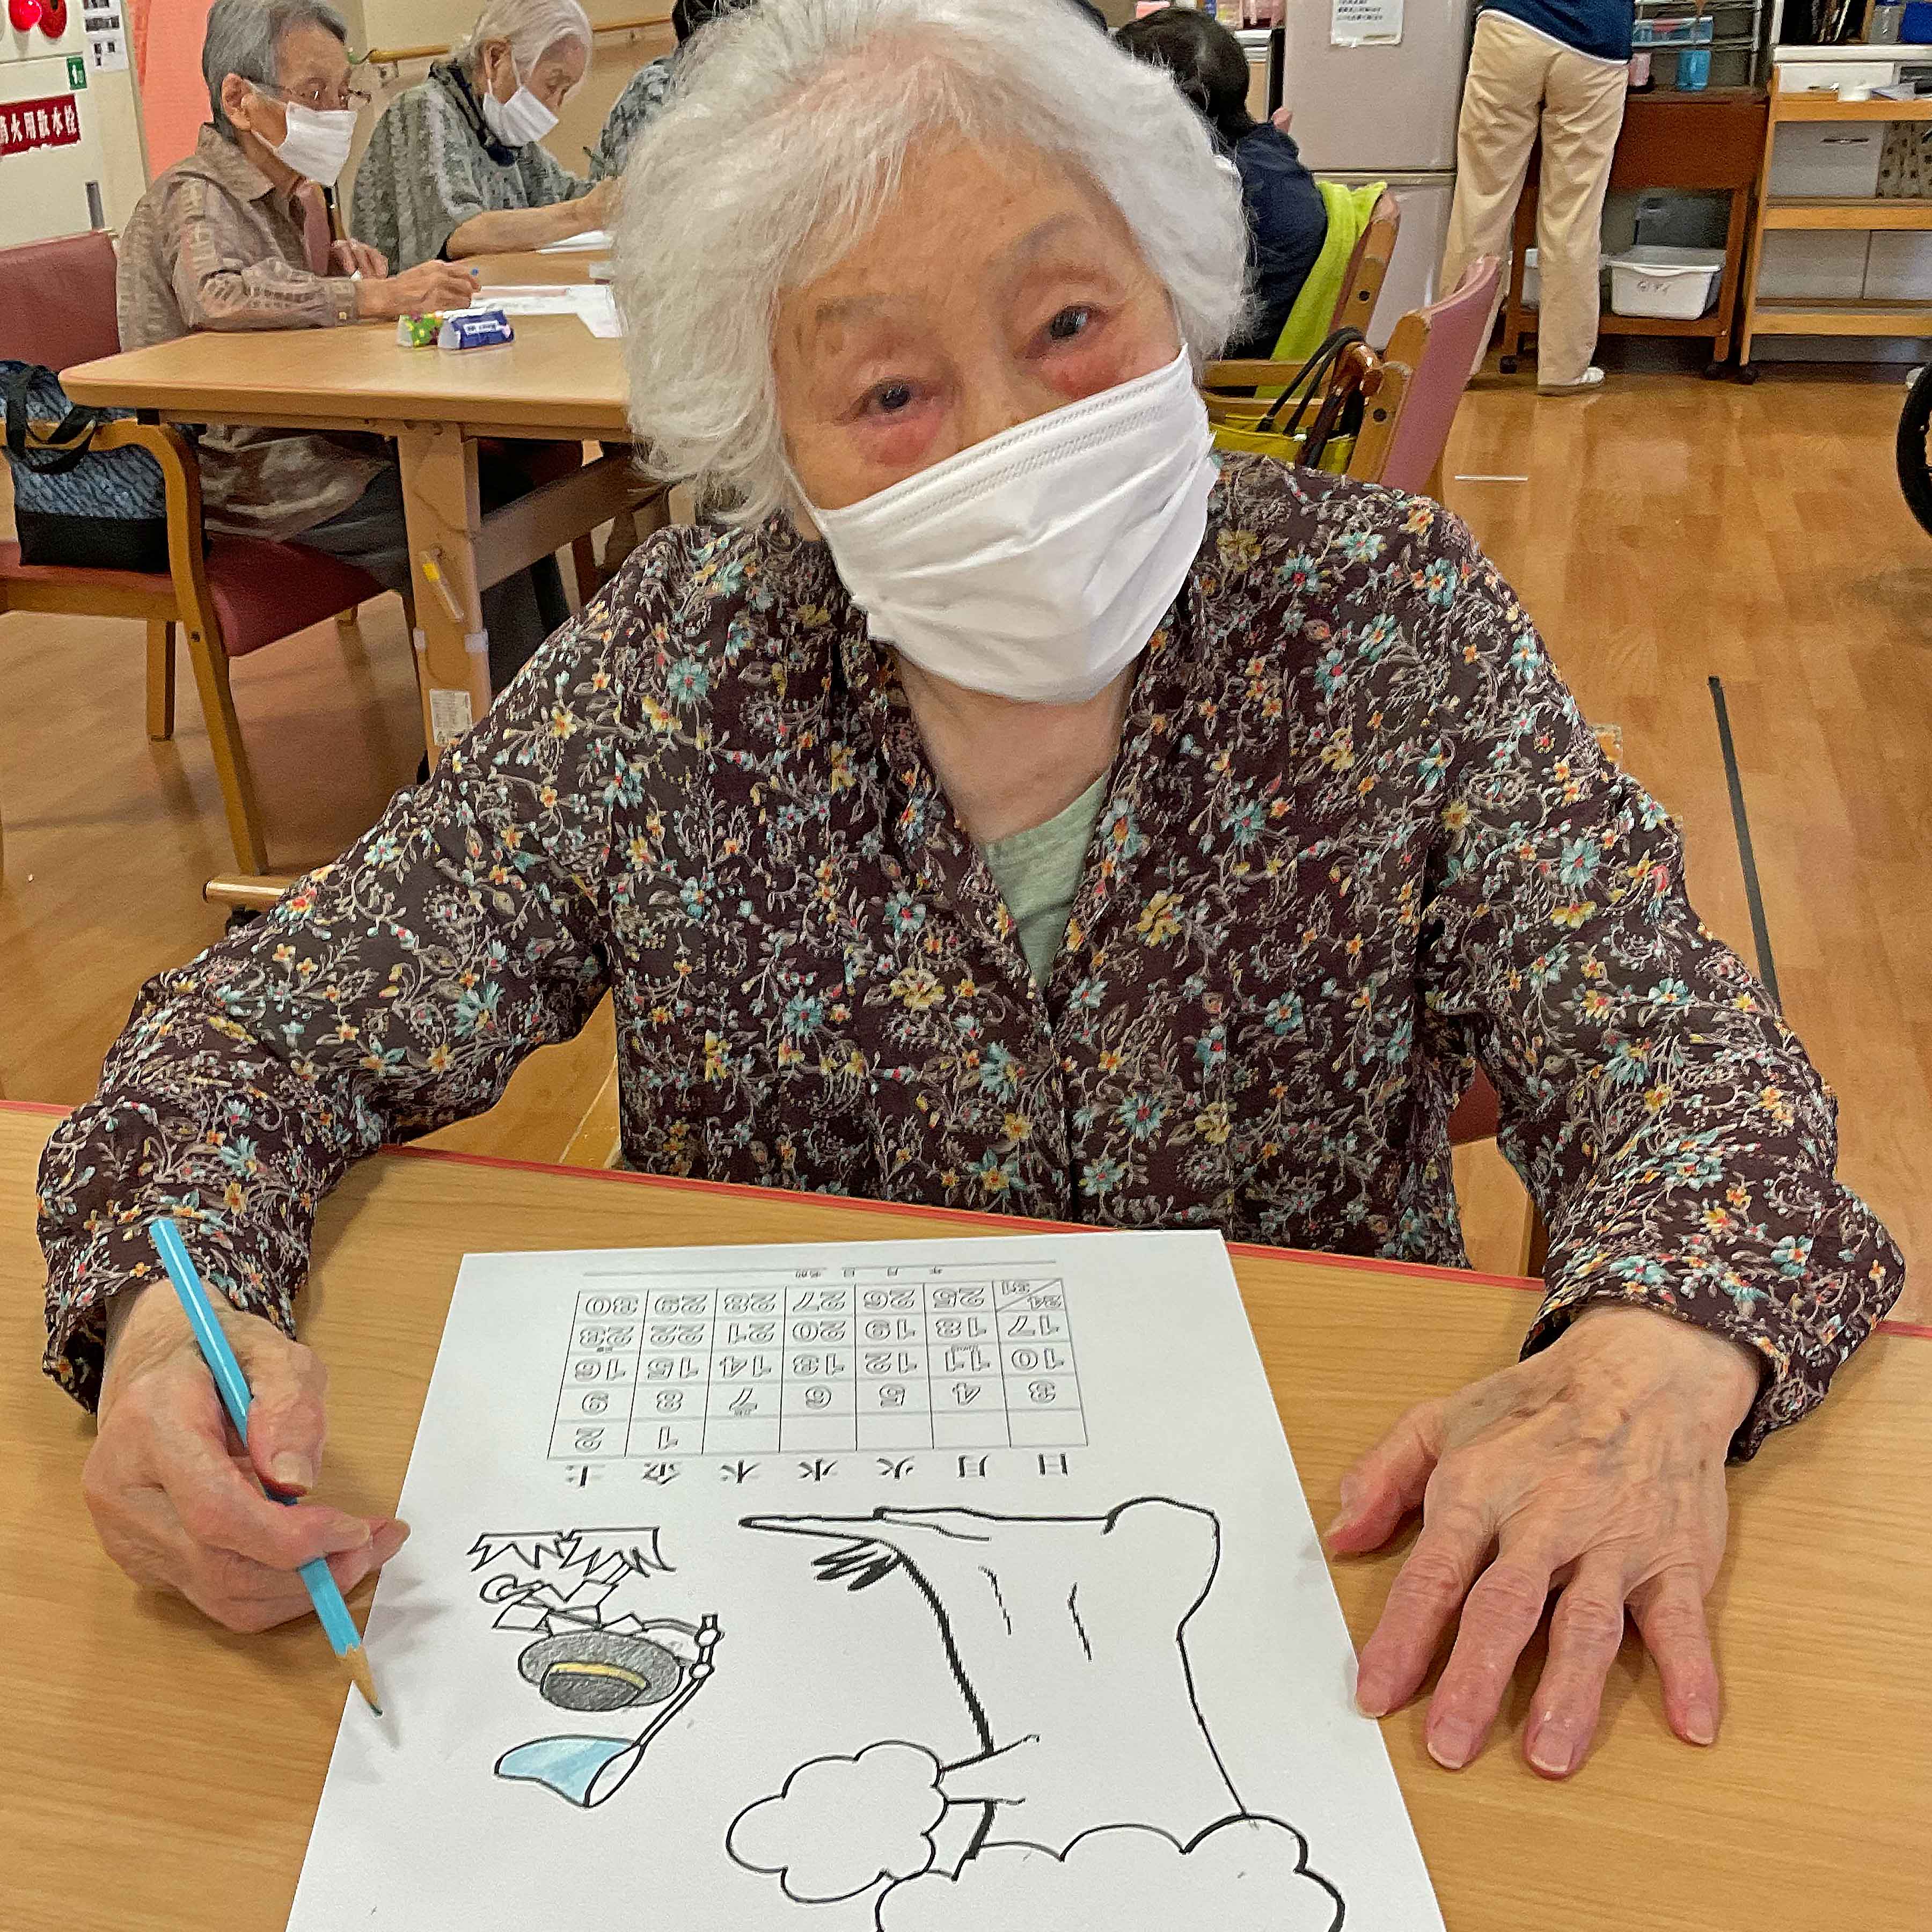 消火用散水栓
日 月 火 水 木 金 土
1 2
3 4 5 6 7 8 9
10 11 12 13 14 15 16
17 18 19 20 21 22 23
24/31 25 26 27 28 29 30
年 月 日 名前